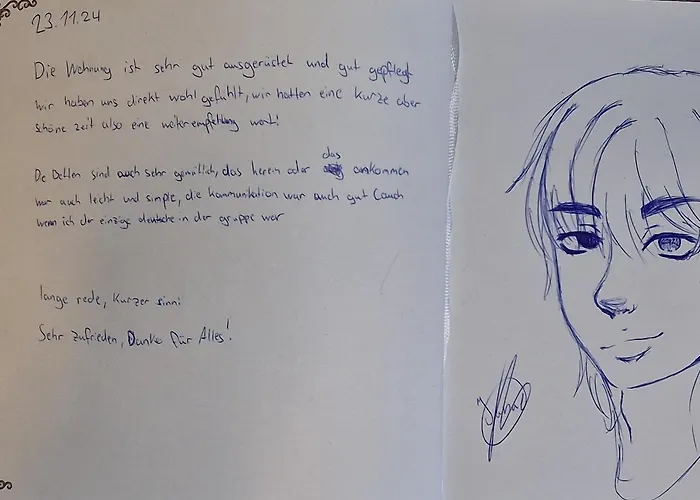 23.11.24
Die Wohnung ist sehr gut ausgerüstet und gut gepflegt
wir haben uns direkt wohl gefühlt, wir hatten eine kurze aber
schöne zeit also eine weiterempfehlung wert!
De Betten sind auch sehr gemütlich, das herein oder das ankommen
war auch leicht und simple, die kommunikation war auch gut (auch
wenn ich der einzige deutsche in der gruppe war
lange rede, kurzer sinn:
Sehr zufrieden, Danke für Alles!